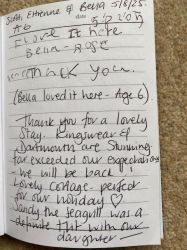 Sian, Etienne & Bella 5/8/25.
I love it here.
Bella-Rose
Thank you.
(Bella loved it here - Age 6).
Thank you for a lovely
stay. Kingswear &
Dartmouth are stunning
far exceeded our expectations
- we will be back!
Lovely cottage - perfect
for our holiday ♡
Sandy the seagull was a
definite hit with our
daughter